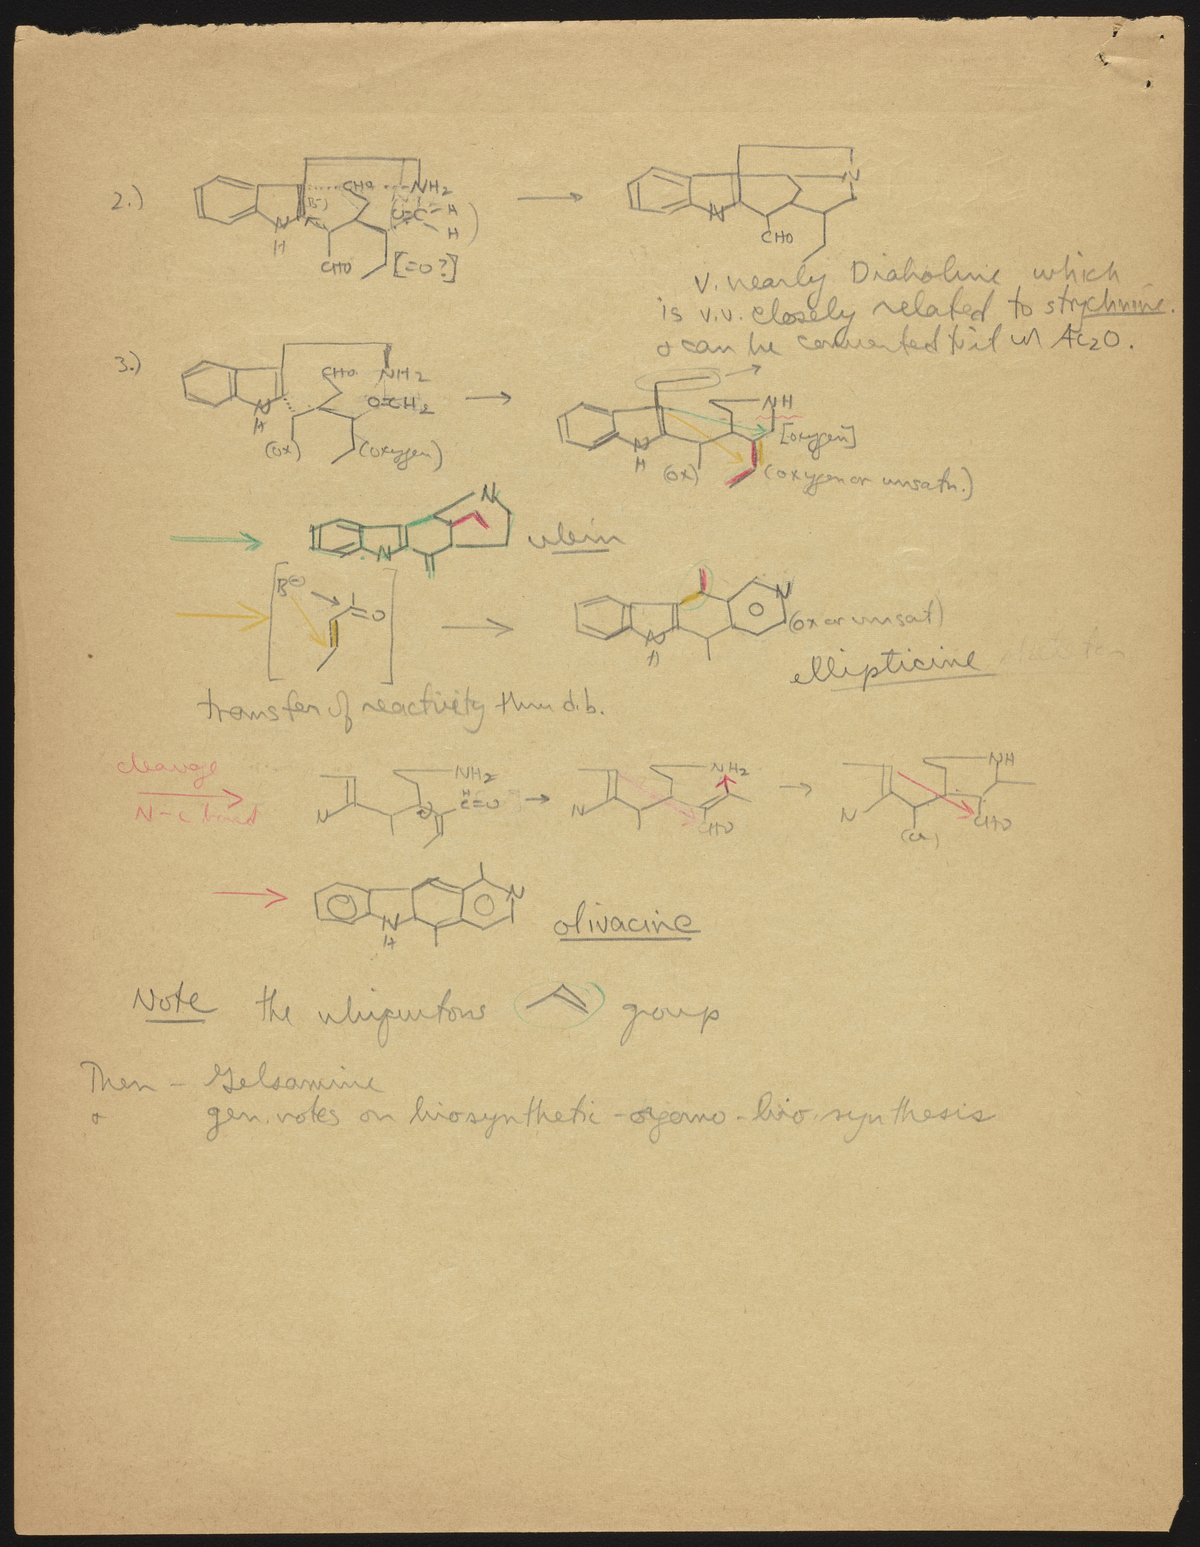 2.)
CHO NH2
(B-) C H
N H
H
CHO [=O?]
N
N
CHO
v. nearly Diaboline which
is v.v. closely related to strychnine.
& can be converted to it w/ Ac2O.
3.)
CHO NH2
N O=CH2
H
(ox) (oxygen)
NH
[oxygen]
N
H (ox) (oxygen or unsatn.)
N
N
ulein
B⊖
=O
N
N
H
(ox or unsat)
ellipticine
transfer of reactivity thru d.b.
cleavage
N-C bond
NH2
H
C=O
N
NH2
N
CHO
NH
N
(ox)
CHO
N
N
H
olivacine
Note the ubiquitous group
Then - Gelsamine
& gen. notes on biosynthetic - organo - bio. synthesis